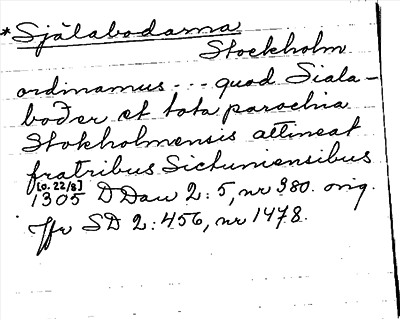 *Själabodarna
Stockholm
ordinamus --- quod Siala-
bođer et tota parochia
Stokholmensis attineat
fratribus Sictuniensibus
[o. 22/8]
1305 DDan 2:5, nr 380. orig.
Jfr SD 2:456, nr 1478.